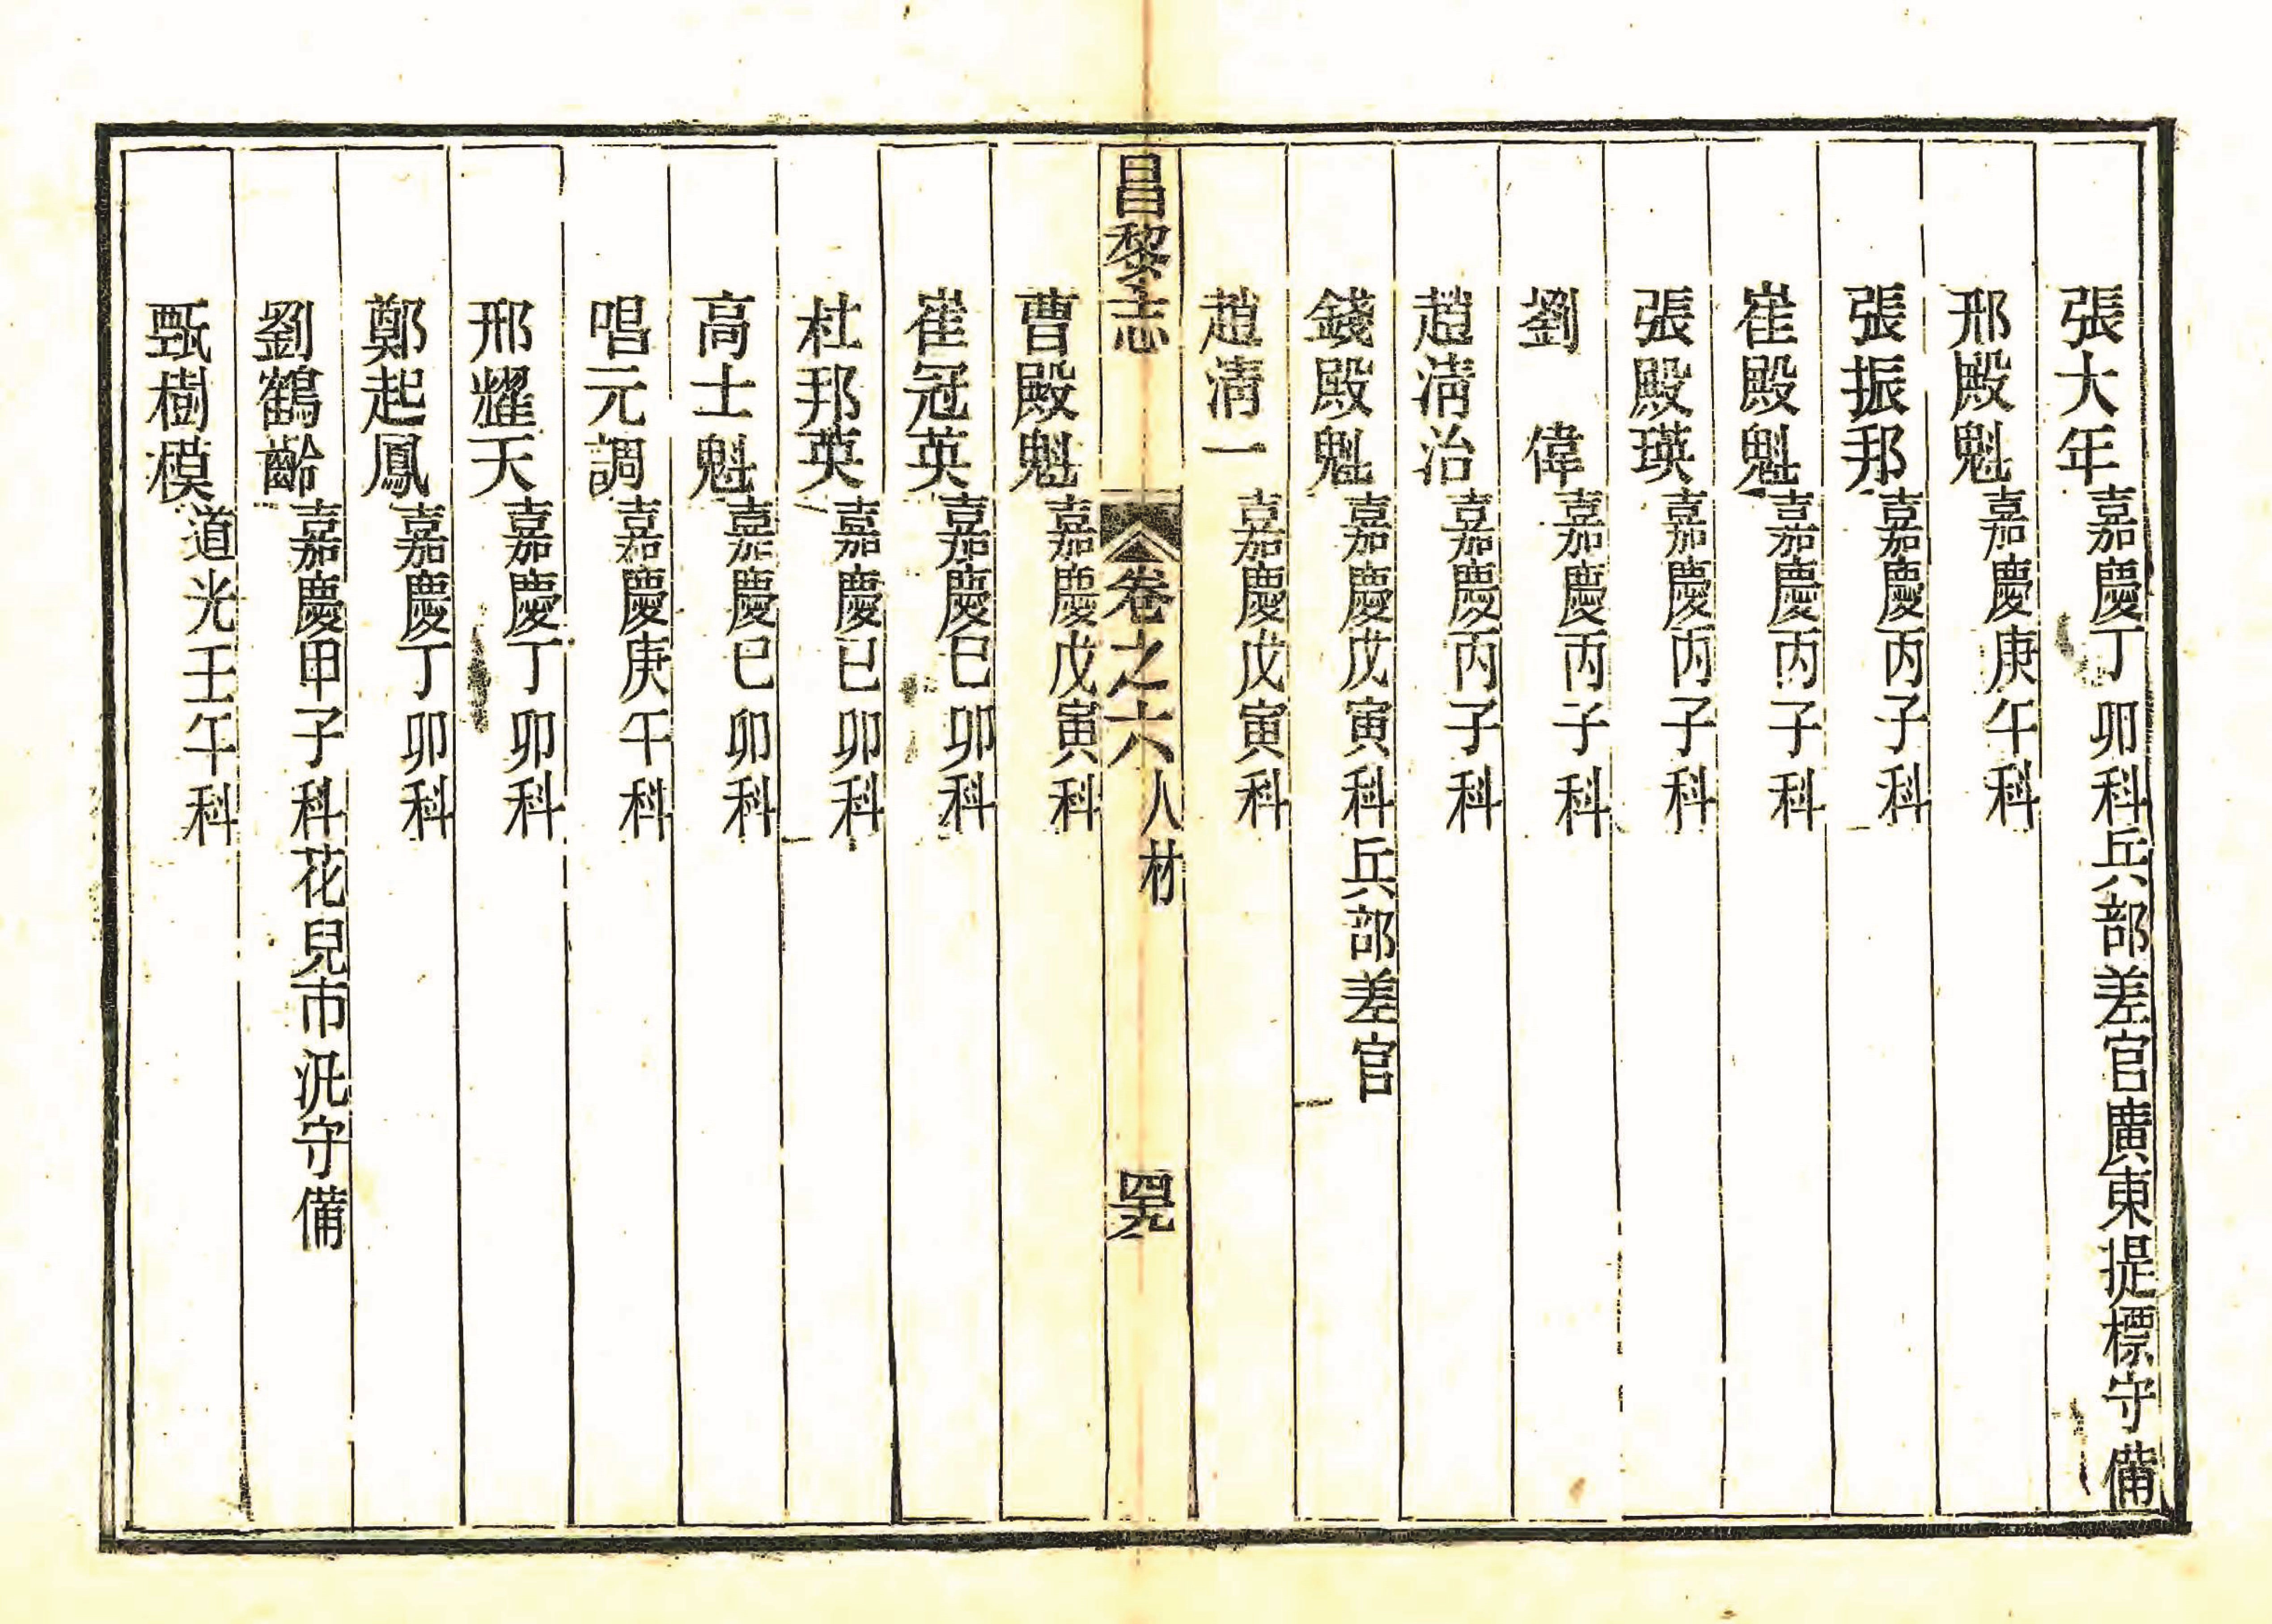 張大年嘉慶丁卯科兵部差官廣東提標守備
邢殿魁嘉慶庚午科
張振邦嘉慶丙子科
崔殿魁嘉慶丙子科
張殿瑛嘉慶丙子科
劉偉嘉慶丙子科
趙淸治嘉慶丙子科
錢殿魁嘉慶戊寅科兵部差官
趙淸一嘉慶戊寅科
昌黎志 卷之六 人材 四九
曹殿魁嘉慶戊寅科
崔冠英嘉慶已卯科
杜邦英嘉慶已卯科
高士魁嘉慶已卯科
唱元調嘉慶庚午科
邢耀天嘉慶丁卯科
鄭起鳳嘉慶丁卯科
劉鶴齡嘉慶甲子科花兒市汛守備
甄樹模道光壬午科